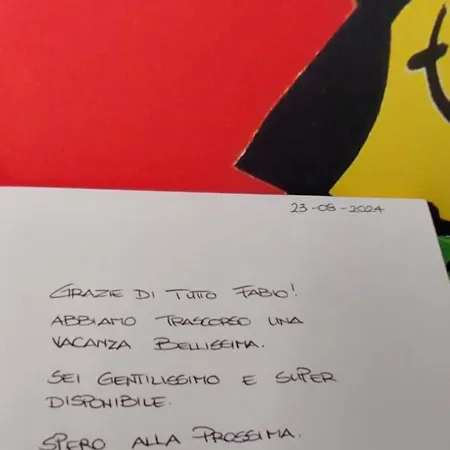 23-08-2024
GRAZIE DI TUTTO FABIO!
ABBIAMO TRASCORSO UNA
VACANZA BELLISSIMA.
SEI GENTILISSIMO E SUPER
DISPONIBILE.
SPERO ALLA PROSSIMA.